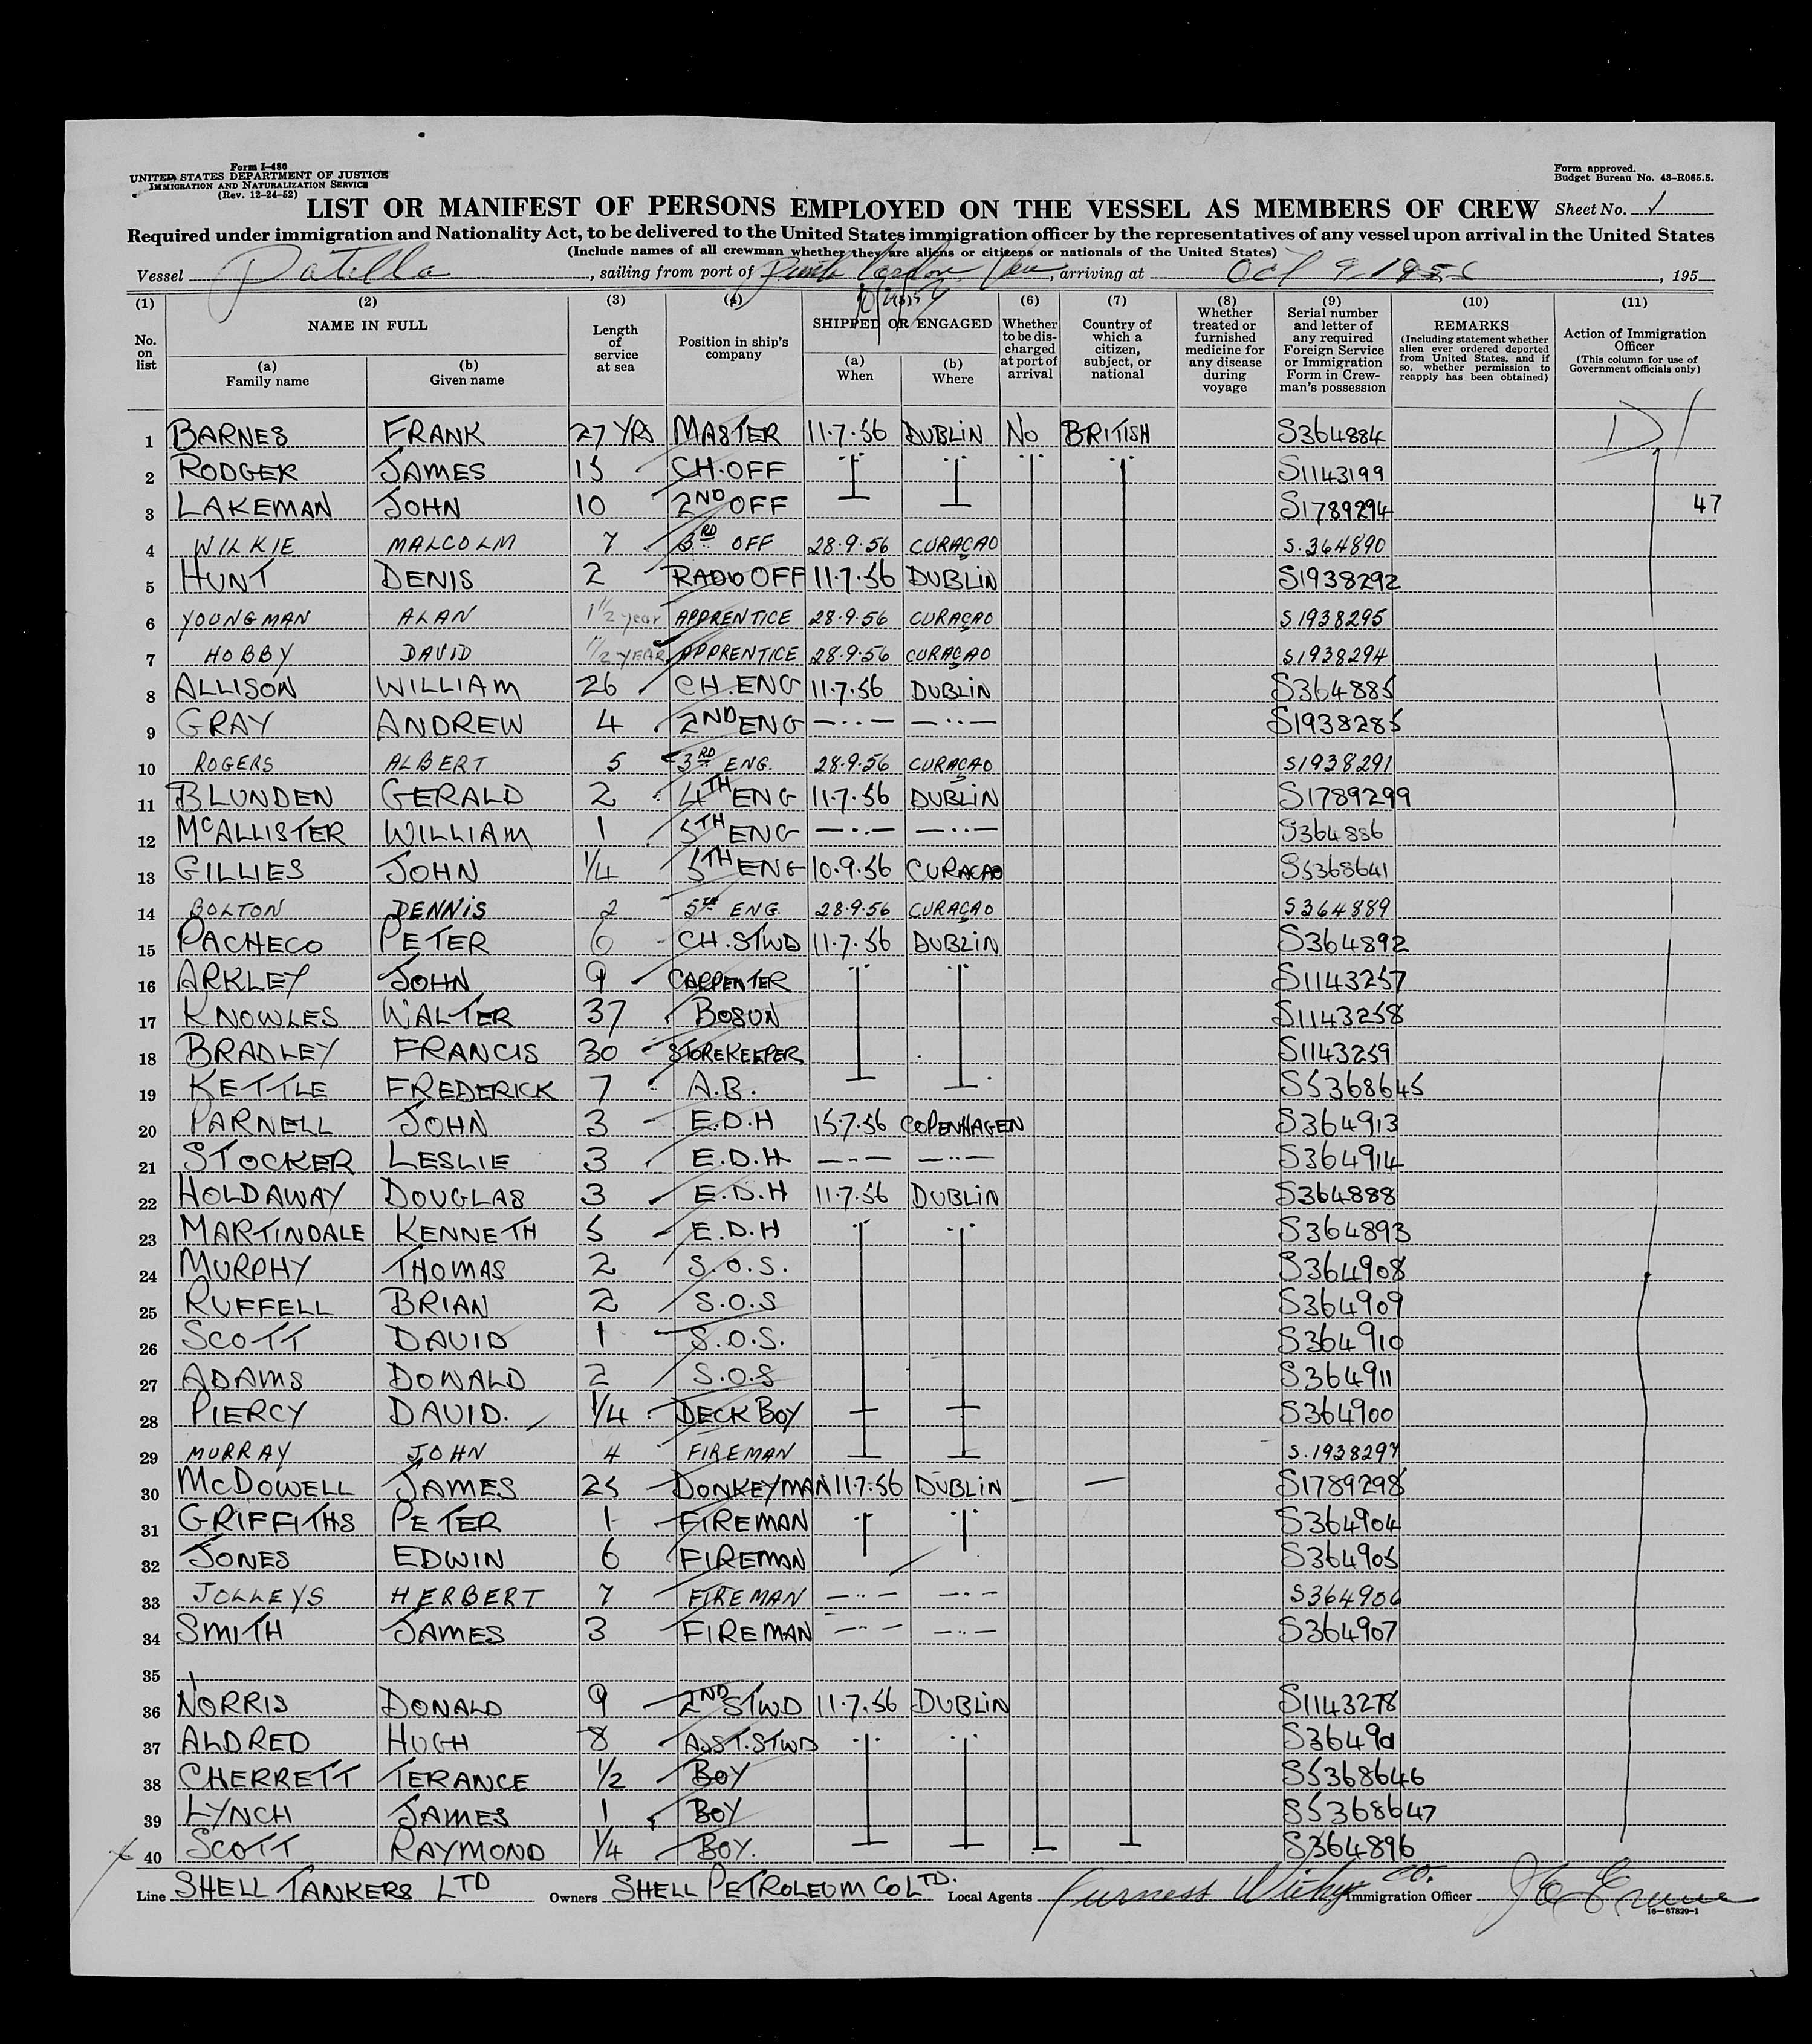 Form I-480
UNITED STATES DEPARTMENT OF JUSTICE
IMMIGRATION AND NATURALIZATION SERVICE
(Rev. 12-24-52)
Form approved.
Budget Bureau No. 43-R065.5.
LIST OR MANIFEST OF PERSONS EMPLOYED ON THE VESSEL AS MEMBERS OF CREW Sheet No. 1
Required under immigration and Nationality Act, to be delivered to the United States immigration officer by the representatives of any vessel upon arrival in the United States
(Include names of all crewman whether they are aliens or citizens or nationals of the United States)
Vessel Patella, sailing from port of Punta Cardon, Ven, arriving at Oct 9 1956, 195
(1) No. on list
(2) NAME IN FULL
(a) Family name
(b) Given name
(3) Length of service at sea
(4) Position in ship's company
(5) SHIPPED OR ENGAGED
(a) When
(b) Where
(6) Whether to be discharged at port of arrival
(7) Country of which a citizen, subject, or national
(8) Whether treated or furnished medicine for any disease during voyage
(9) Serial number and letter of any required Foreign Service or Immigration Form in Crewman's possession
(10) REMARKS (Including statement whether alien ever ordered deported from United States, and if so, whether permission to reapply has been obtained)
(11) Action of Immigration Officer (This column for use of Government officials only)
1 BARNES FRANK 27 YRS MASTER 11.7.56 DUBLIN NO BRITISH S364884 D1
2 RODGER JAMES 15 CH.OFF S1143199
3 LAKEMAN JOHN 10 2ND OFF S1789294 47
4 WILKIE MALCOLM 7 3RD OFF 28.9.56 CURAÇAO S.364890
5 HUNT DENIS 2 RADIO OFF 11.7.56 DUBLIN S1938292
6 YOUNGMAN ALAN 1 1/2 year APPRENTICE 28.9.56 CURAÇAO S1938295
7 HOBBY DAVID 1/2 YEAR APPRENTICE 28.9.56 CURAÇAO S1938294
8 ALLISON WILLIAM 26 CH.ENG 11.7.56 DUBLIN S364885
9 GRAY ANDREW 4 2ND ENG —··— —··— S1938285
10 ROGERS ALBERT 5 3RD ENG. 28.9.56 CURAÇAO S1938291
11 BLUNDEN GERALD 2 4TH ENG 11.7.56 DUBLIN S1789299
12 McALLISTER WILLIAM 1 5TH ENG —··— —··— S364886
13 GILLIES JOHN 1/4 5TH ENG 10.9.56 CURACAO S5368641
14 BOLTON DENNIS 2 5TH ENG. 28.9.56 CURAÇAO S364889
15 PACHECO PETER 6 CH.STWD 11.7.56 DUBLIN S364892
16 ARKLEY JOHN 9 CARPENTER S1143257
17 KNOWLES WALTER 37 BOSUN S1143258
18 BRADLEY FRANCIS 30 STOREKEEPER S1143259
19 KETTLE FREDERICK 7 A.B. S5368645
20 PARNELL JOHN 3 E.D.H 15.7.56 COPENHAGEN S364913
21 STOCKER LESLIE 3 E.D.H —··— —··— S364914
22 HOLDAWAY DOUGLAS 3 E.D.H 11.7.56 DUBLIN S364888
23 MARTINDALE KENNETH 5 E.D.H S364893
24 MURPHY THOMAS 2 S.O.S. S364908
25 RUFFELL BRIAN 2 S.O.S S364909
26 SCOTT DAVID 1 S.O.S. S364910
27 ADAMS DONALD 2 S.O.S S364911
28 PIERCY DAVID. 1/4 DECK BOY S364900
29 MURRAY JOHN 4 FIREMAN S.1938297
30 McDOWELL JAMES 25 DONKEYMAN 11.7.56 DUBLIN S1789298
31 GRIFFITHS PETER 1 FIREMAN S364904
32 JONES EDWIN 6 FIREMAN S364905
33 JOLLEYS HERBERT 7 FIREMAN —··— —··— S364906
34 SMITH JAMES 3 FIREMAN —··— —··— S364907
35
36 NORRIS DONALD 9 2ND STWD 11.7.56 DUBLIN S1143278
37 ALDRED HUGH 8 ASST.STWD
38 CHERRETT TERANCE 1/2 BOY S5368646
39 LYNCH JAMES 1 BOY S5368647
40 SCOTT RAYMOND 1/4 BOY. S364896
Line SHELL TANKERS LTD Owners SHELL PETROLEUM CO LTD. Local Agents Furness Withy Co. Immigration Officer
16-67829-1